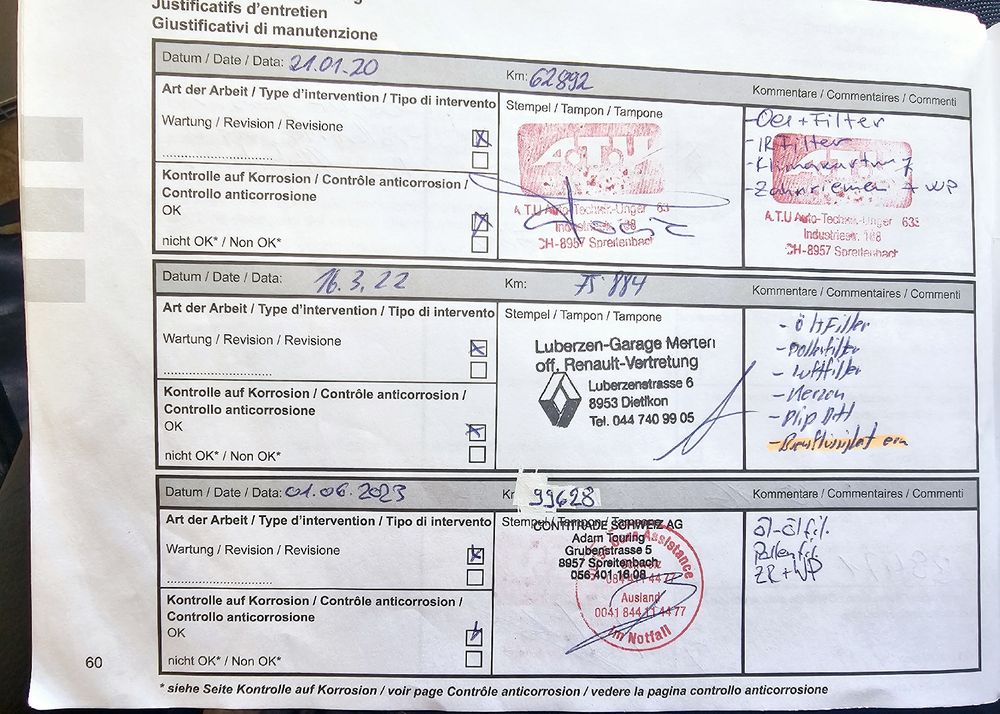 Justificatifs d'entretien
Giustificativi di manutenzione
Datum / Date / Data: 21.01.20
Km: 62892
Kommentare / Commentaires / Commenti
Art der Arbeit / Type d'intervention / Tipo di intervento
Stempel / Tampon / Tampone
Wartung / Revision / Revisione
Kontrolle auf Korrosion / Contrôle anticorrosion /
Controllo anticorrosione
OK
nicht OK* / Non OK*
A.T.U
A.T.U Auto-Technik-Unger 633
Industriestr. 168
CH-8957 Spreitenbach
- Oel + Filter
- IR Filter
- Klimawartung
- Zahnriemen + WP
A.T.U
A.T.U Auto-Technik-Unger 633
Industriestr. 168
CH-8957 Spreitenbach
Datum / Date / Data: 16.3.22
Km: 75'884
Kommentare / Commentaires / Commenti
Art der Arbeit / Type d'intervention / Tipo di intervento
Stempel / Tampon / Tampone
Wartung / Revision / Revisione
Kontrolle auf Korrosion / Contrôle anticorrosion /
Controllo anticorrosione
OK
nicht OK* / Non OK*
Luberzen-Garage Merten
off. Renault-Vertretung
Luberzenstrasse 6
8953 Dietikon
Tel. 044 740 99 05
- Öl + Filter
- Pollenfilter
- Luftfilter
- Kerzen
Datum / Date / Data: 01.06.2023
Km 99628
Kommentare / Commentaires / Commenti
Art der Arbeit / Type d'intervention / Tipo di intervento
Stempel / Tampon / Tampone
Wartung / Revision / Revisione
Kontrolle auf Korrosion / Contrôle anticorrosion /
Controllo anticorrosione
OK
nicht OK* / Non OK*
CONTITRADE SCHWEIZ AG
Adam Touring
Grubenstrasse 5
8957 Spreitenbach
056 401 16 08
Assistance
Ausland
0041 844 11 44 77
Im Notfall
öl-ölfil.
Pollenfil.
ZR + WP
60
* siehe Seite Kontrolle auf Korrosion / voir page Contrôle anticorrosion / vedere la pagina controllo anticorrosione